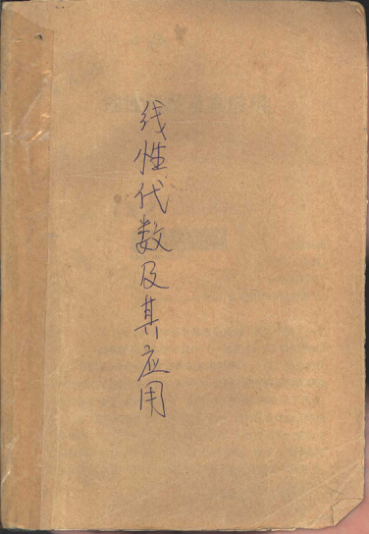 线性代数及其应用